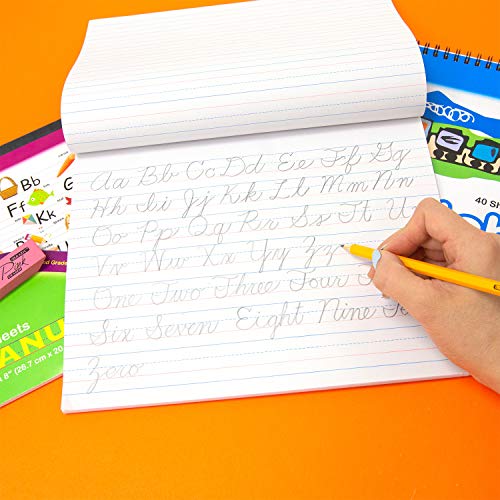 Aa Bb Cc Dd Ee Ff Gg
Hh Ii Jj Kk Ll Mm Nn
Oo Pp Qq Rr Ss Tt U
Vv Ww Xx Yy Zz
One Two Three Four
Six Seven Eight Nine
Zero
Bb
Ff
Kk
Pink
eets
ANU
8" (26.7 cm x 20
40 Sh